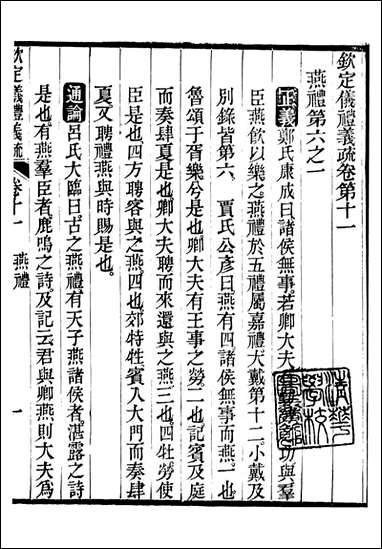 欽定儀禮義疏卷第十一
燕禮第六之一
正義鄭氏康成曰諸侯無事若卿大夫功與羣
臣燕飲以樂之燕禮於五禮屬嘉禮大戴第十二小戴及
別錄皆第六 賈氏公彥曰燕有四諸侯無事而燕一也
魯頌于胥樂兮是也卿大夫有王事之勞二也記賓及庭
而奏肆夏是也卿大夫聘而來還與之燕三也四牡勞使
臣是也四方聘客與之燕四也郊特牲賓入大門而奏肆
夏又聘禮燕與時賜是也
通論呂氏大臨曰古之燕禮有天子燕諸侯者湛露之詩
是也有燕羣臣者鹿鳴之詩及記云君與卿燕則大夫爲
欽定儀禮義疏 卷十一 燕禮 一
清華
學校
圖書館